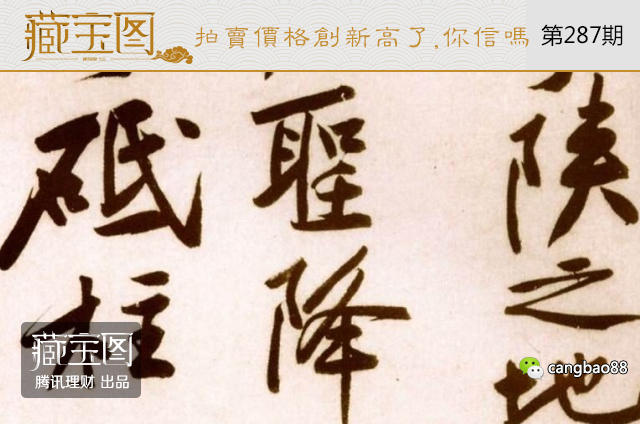 藏宝图
拍賣價格創新高了,你信嗎
第287期
陝之地
聖降
砥柱
cangbao88
藏宝图
腾讯理财 出品